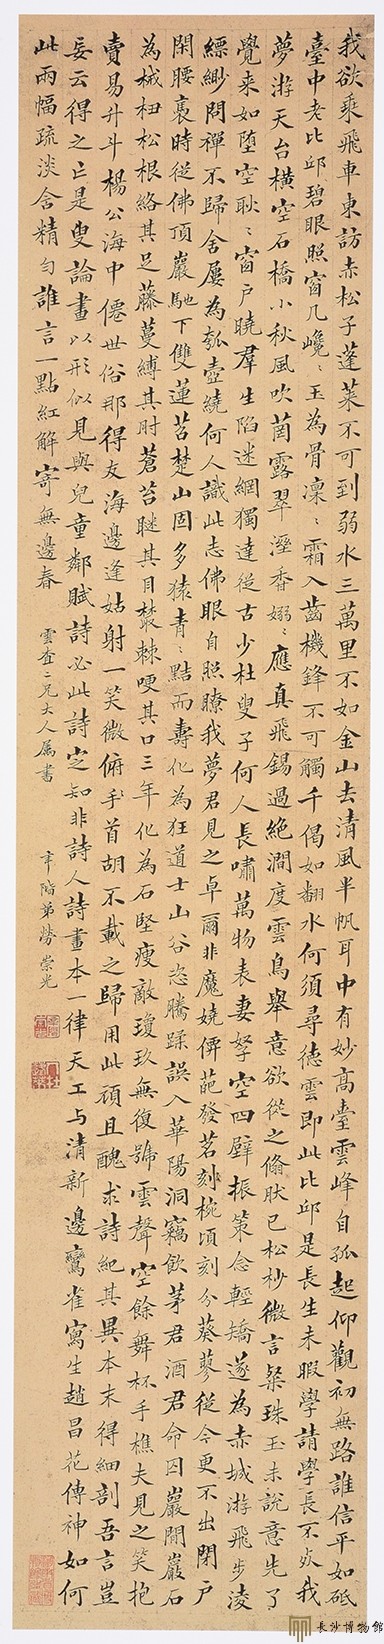 我欲乘飛車東訪赤松子蓬萊不可到弱水三萬里不如金山去清風半帆耳中有妙高臺雲峰自孤起仰觀初無路誰信平如砥
臺中老比邱碧眼照窗几巉〻玉為骨凜〻霜入齒機鋒不可觸千偈如翻水何須尋德雲即此比邱是長生未暇學請學長不死我
夢游天台橫空石橋小秋風吹菌露翠溼香嫋〻應真飛錫過絕澗度雲鳥舉意欲從之翛肰已松杪微言粲珠玉未說意先了
覺来如墮空耿〻窗戶曉羣生陷迷網獨達從古少杜叟子何人長嘯萬物表妻孥空四壁振策念輕矯遂為赤城游飛步淩
縹緲問禪不歸舍屢為瓠壺繞何人識此志佛眼自照瞭我夢君見之卓爾非魔嬈僊葩發茗刻椀頃刻分葵蓼從今更不出閉戶
閑腰裊時從佛頂巖馳下雙蓮苕楚山固多猿青〻黠而壽化為狂道士山谷恣騰蹂誤入華陽洞竊飲茅君酒君命囚巖間巖石
為械杻松根絡其足藤蔓縛其肘蒼苔眯其目叢棘哽其口三年化為石堅瘦敵瓊玖無復號雲聲空餘舞杯手樵夫見之笑抱
賣易升斗楊公海中僊世俗那得友海邊逢姑射一笑微俯手首胡不載之歸用此頑且醜求詩紀其異本末得細剖吾言豈
妄云得之亡是叟論畫以形似見與兒童鄰賦詩必此詩定知非詩人詩畫本一律天工与清新邊鸞雀寫生趙昌花傳神如何
此兩幅疏淡含精勻誰言一點紅解寄無邊春
雲查二兄大人屬書
辛階弟勞崇光
長沙博物館